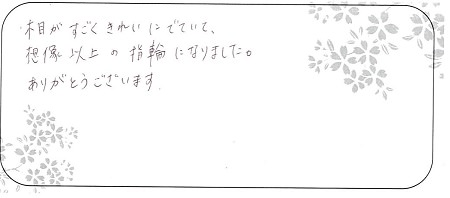 木目がすごくきれいにでていて、
想像以上の指輪になりました。
ありがとうございます。